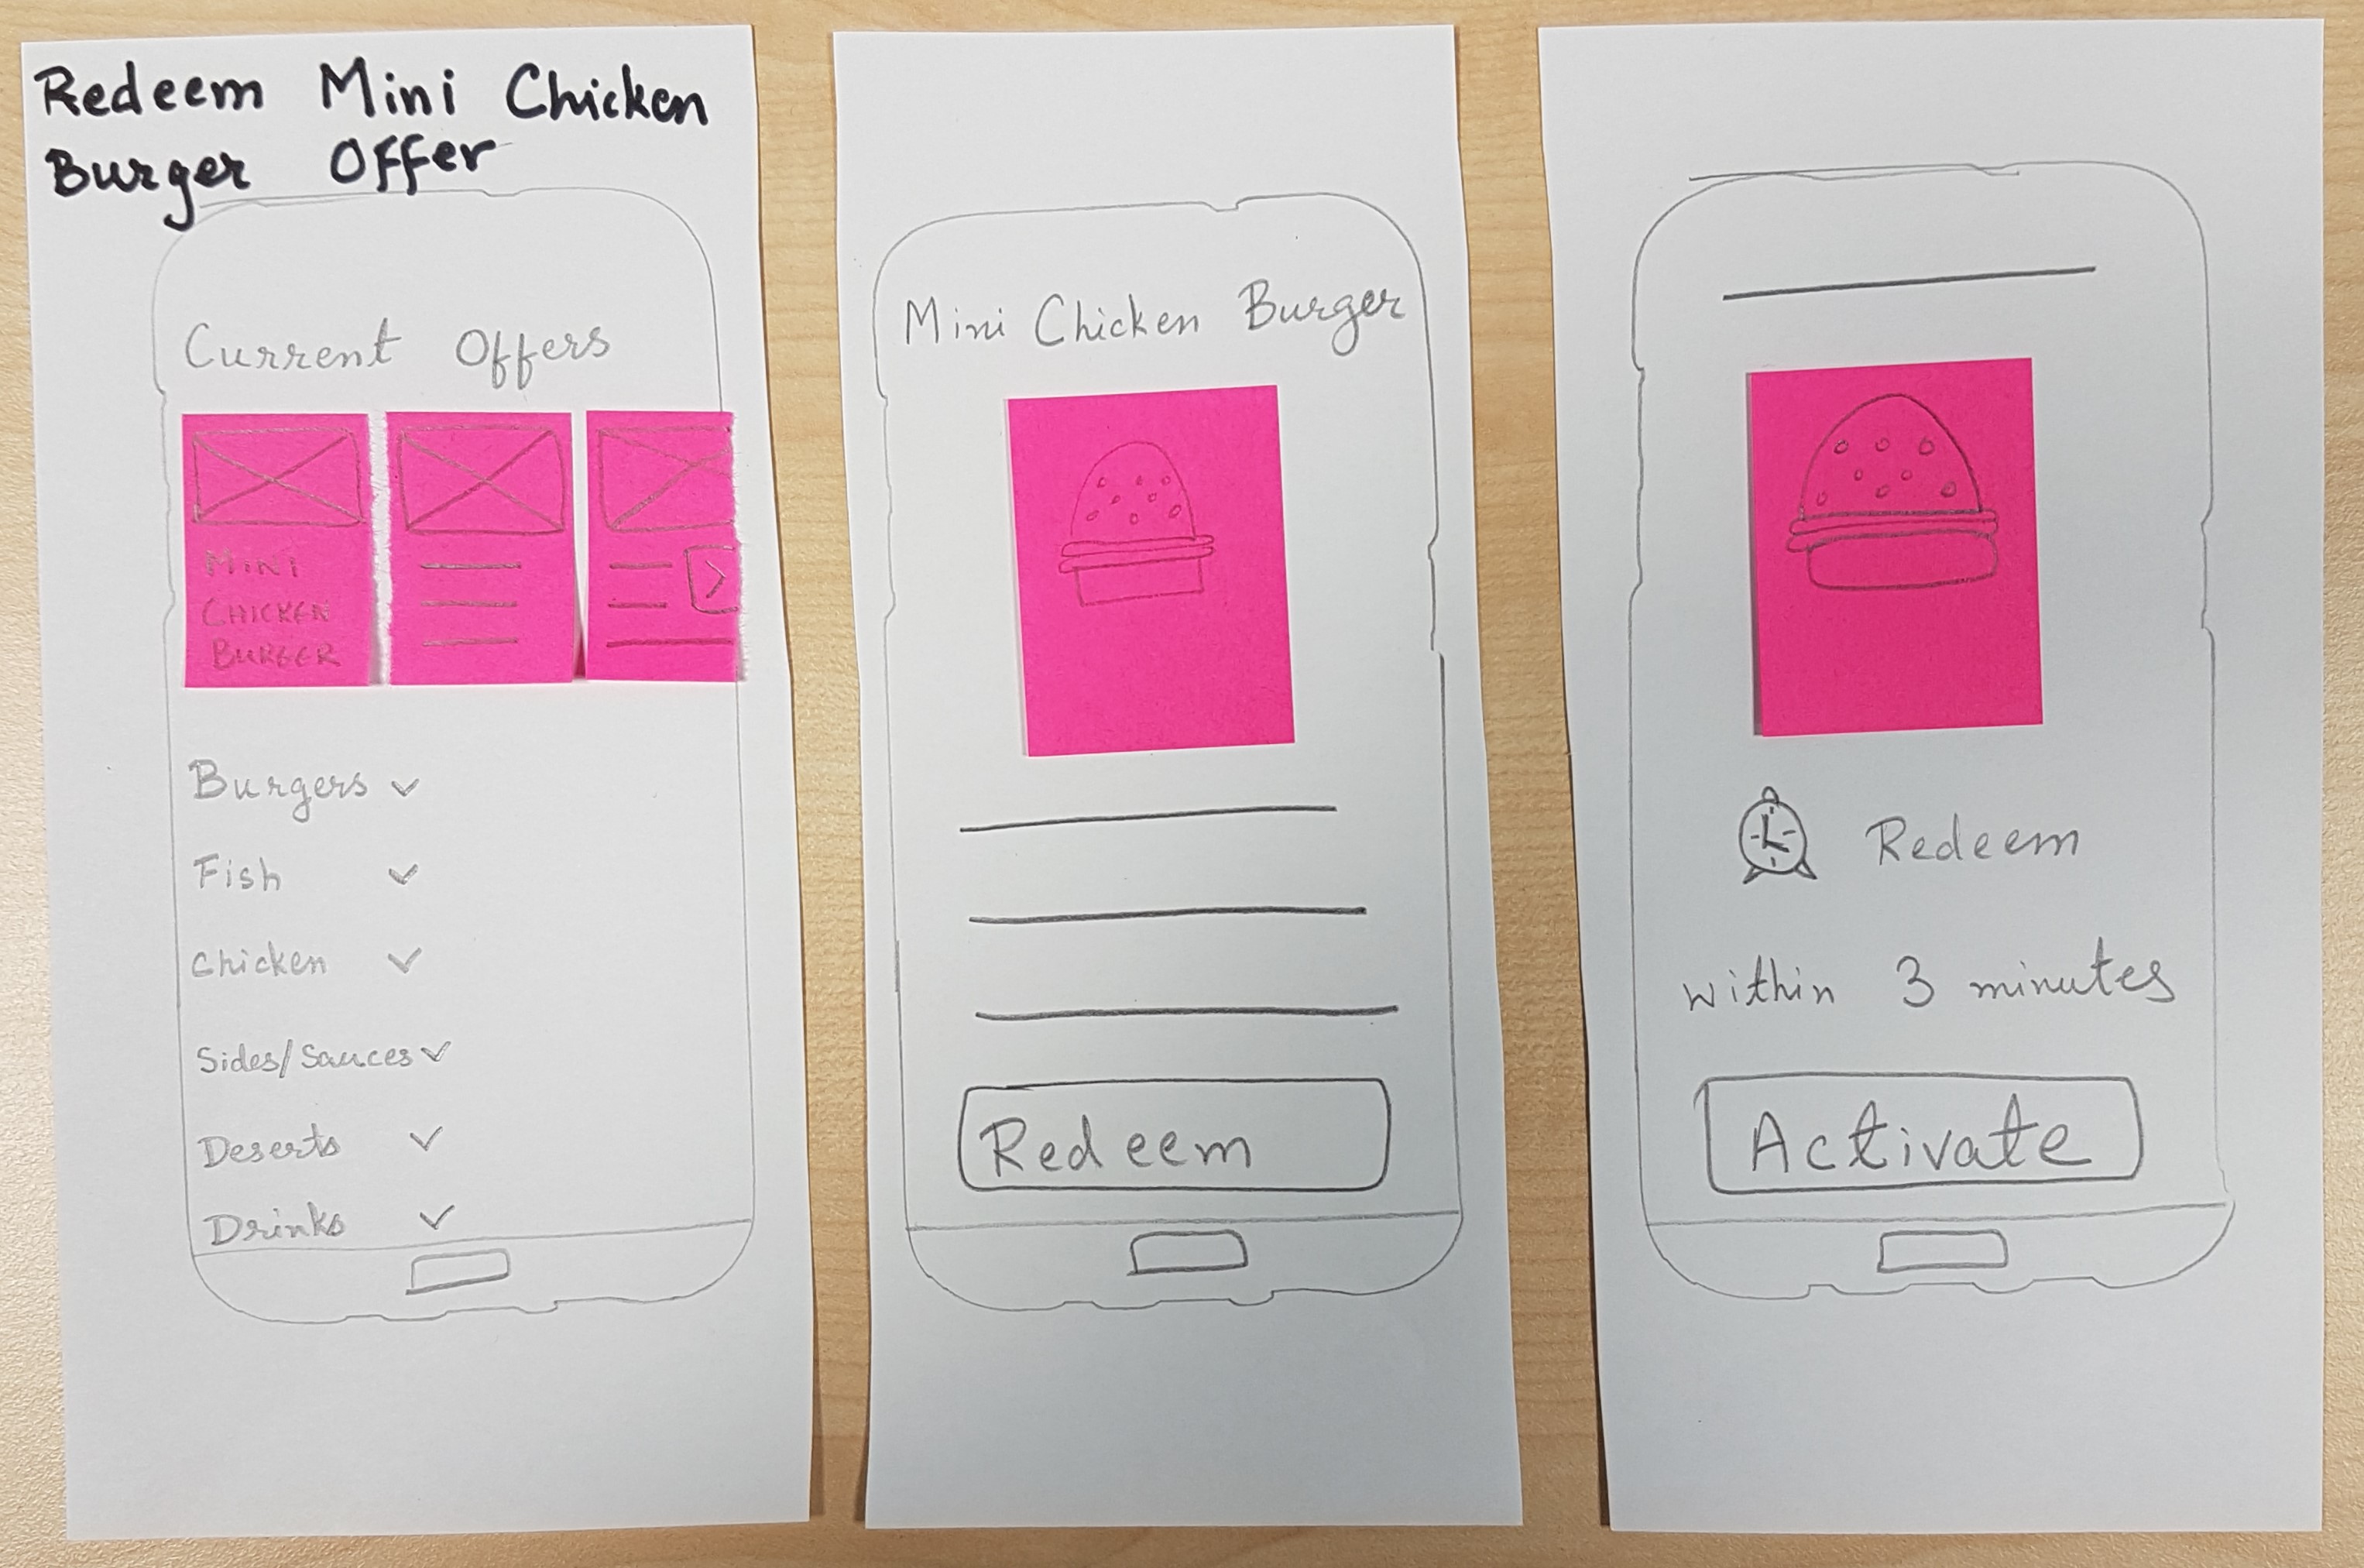 Redeem Mini Chicken
Burger Offer
Current Offers
MINI
CHICKEN
BURGER
Burgers
Fish
Chicken
Sides/Sauces
Deserts
Drinks
Mini Chicken Burger
Redeem
Redeem
within 3 minutes
Activate